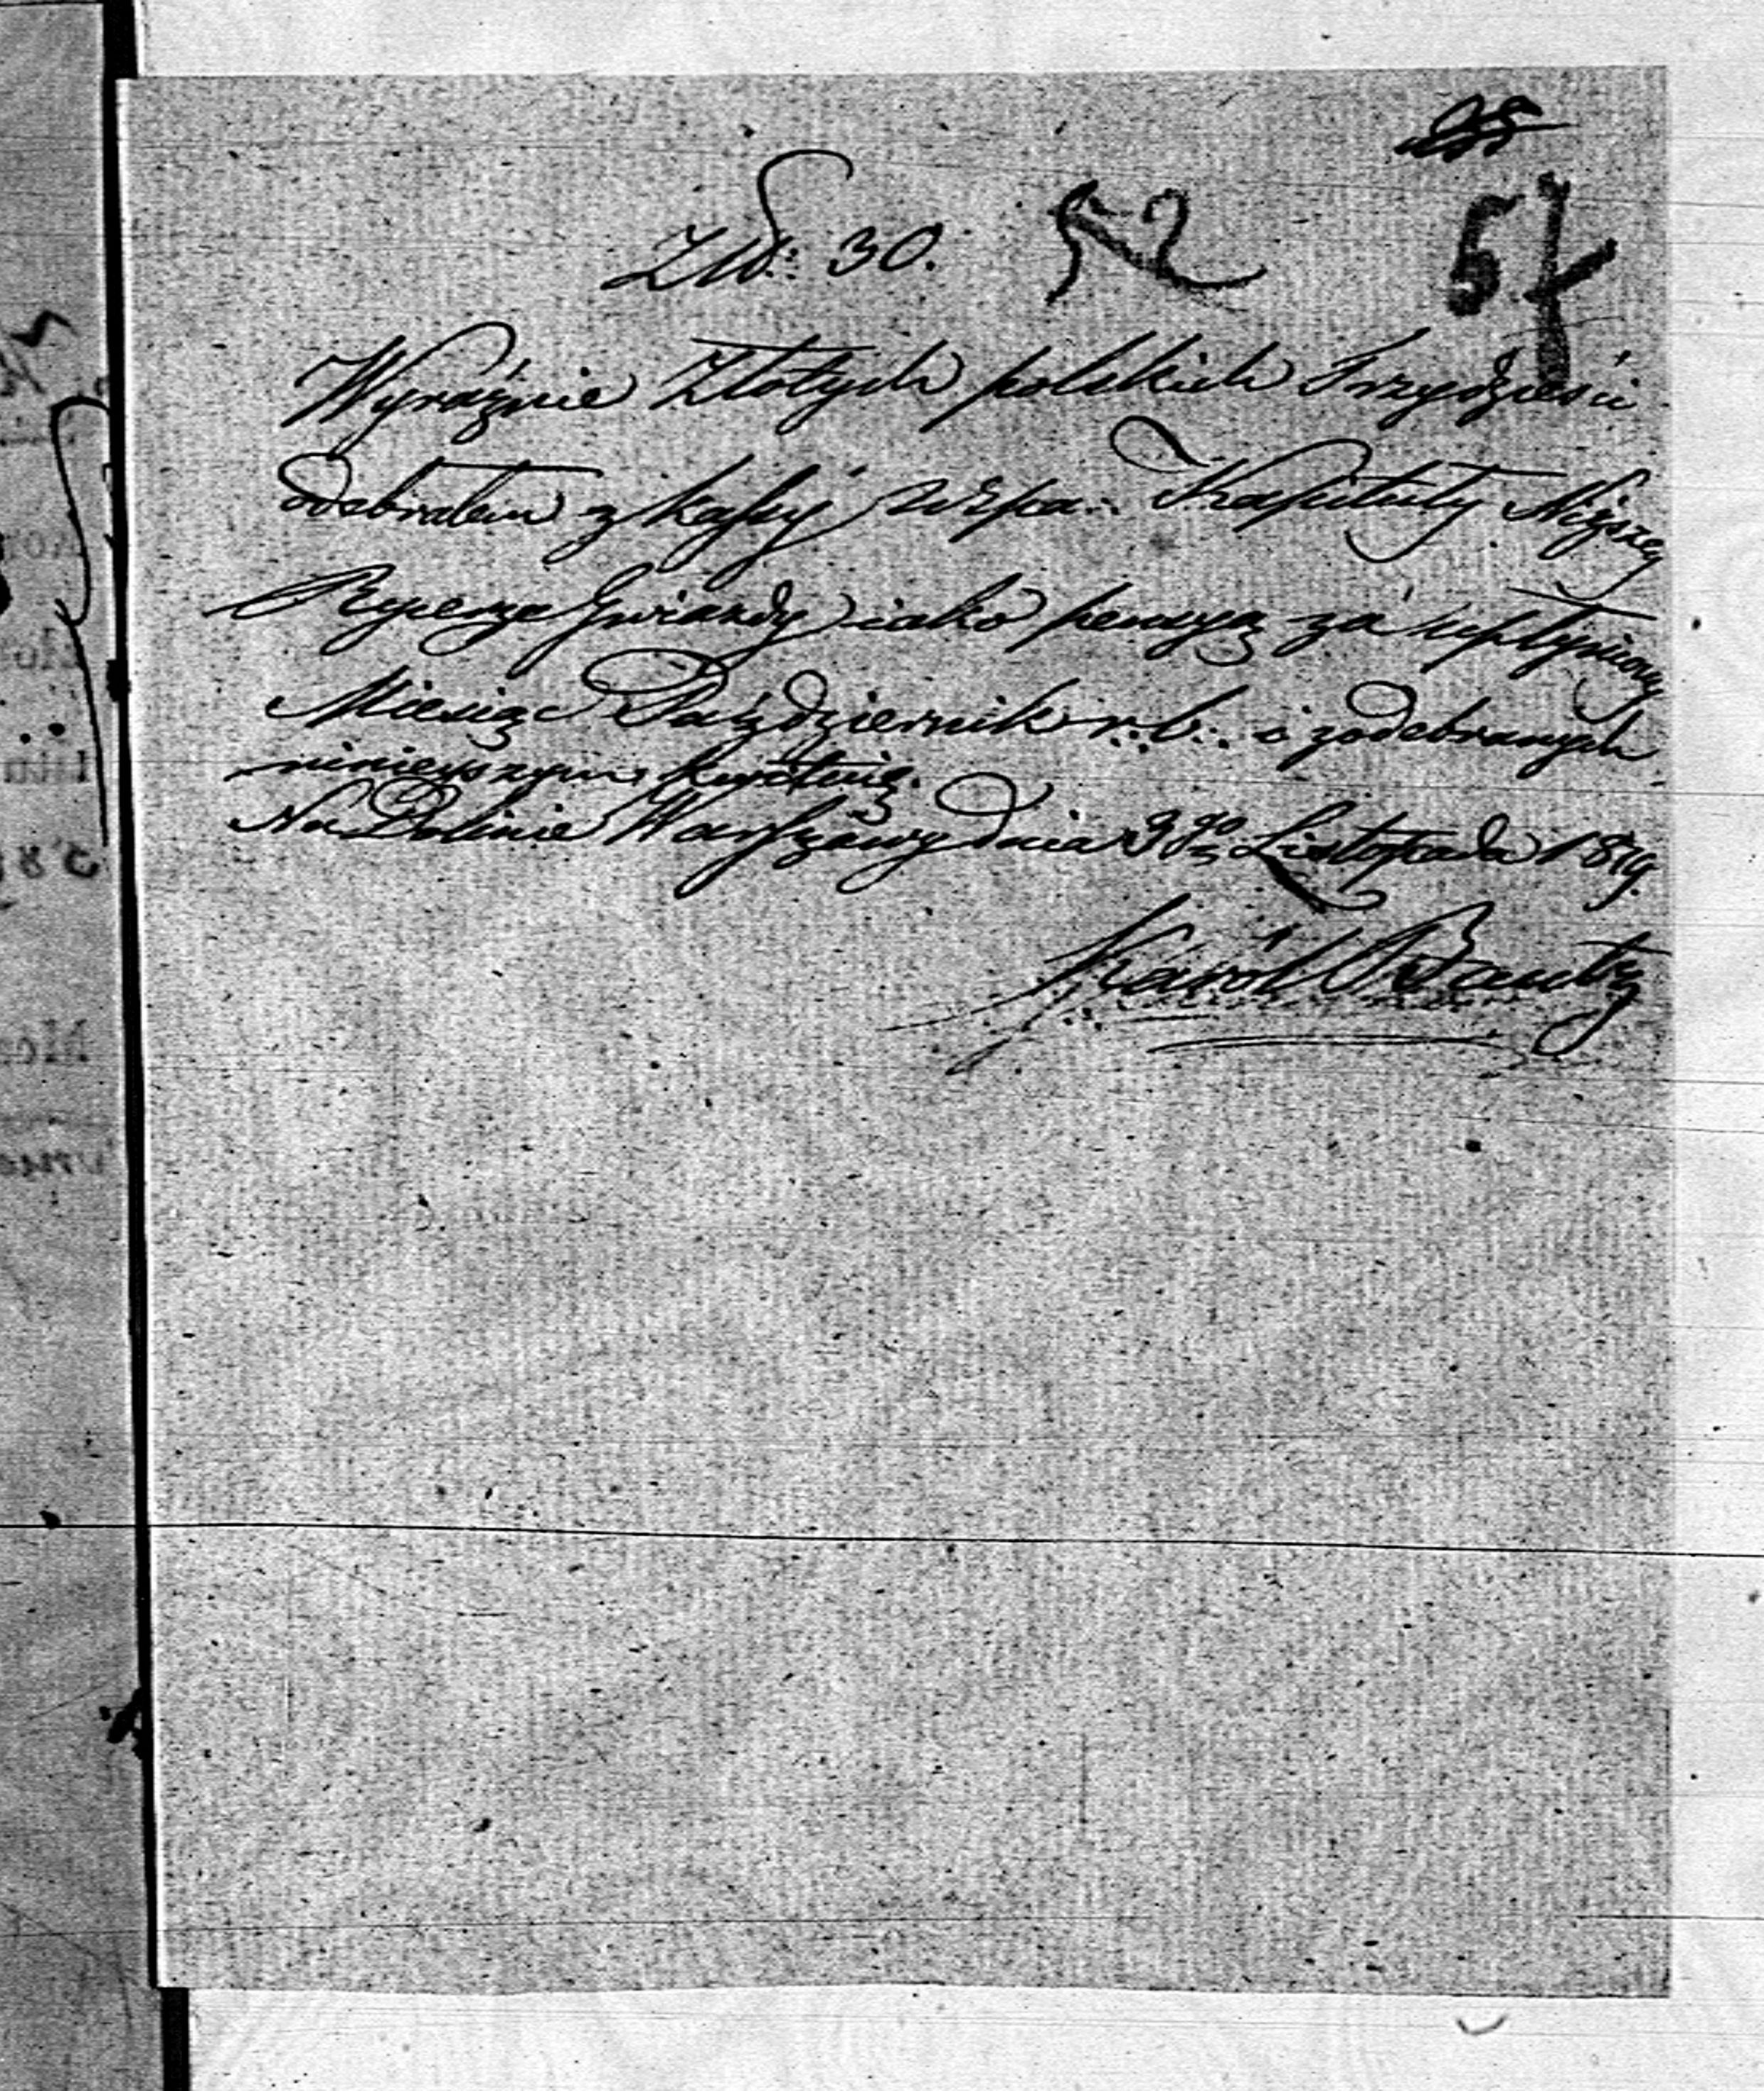 52
57
Złł: 30.
Wyraźnie Złotych polskich Trzydzieści
odebrałem z kassy Kapituły Niższey
Rycerza Gwiazdy iako pensyą za upłyniony
Miesiąc Październik r. b. i z odebranych
ninieyszym kwituię.
Na Dolinie Warszawy dnia Listopada 1819.
Karól Bautz